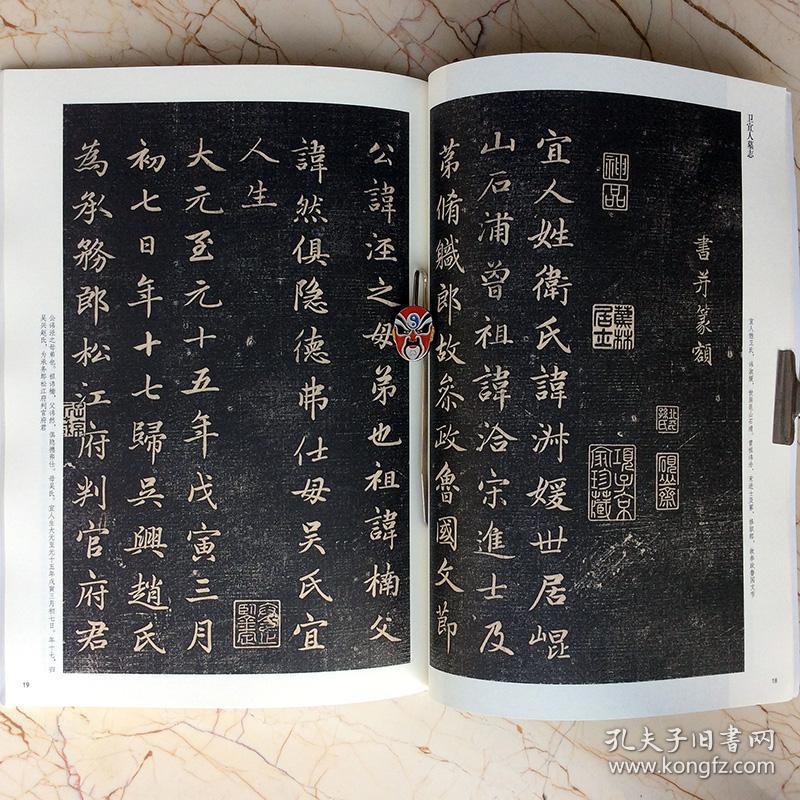 卫宜人墓志
書并篆額
神品
項子京
家珍藏
宜人姓衛氏諱淑媛世居崐
山石浦曾祖諱洽宋進士及
苐脩軄郎故叅政魯國文節
宜人姓卫氏，讳淑媛，世居昆山石浦。曾祖讳洽，宋进士及第，修职郎，故参政鲁国文节
18
公諱涇之母弟也祖諱楠父
諱然俱隐德弗仕母吴氏宜
人生
大元至元十五年戊寅三月
初七日年十七歸吴興趙氏
為承務郎松江府判官府君
公讳泾之母弟也。祖讳楠，父讳然，俱隐德弗仕。母吴氏。宜人生大元至元十五年戊寅三月初七日。年十七，归
吴兴赵氏，为承务郎松江府判官府君
19
孔夫子旧书网
www.kongfz.com